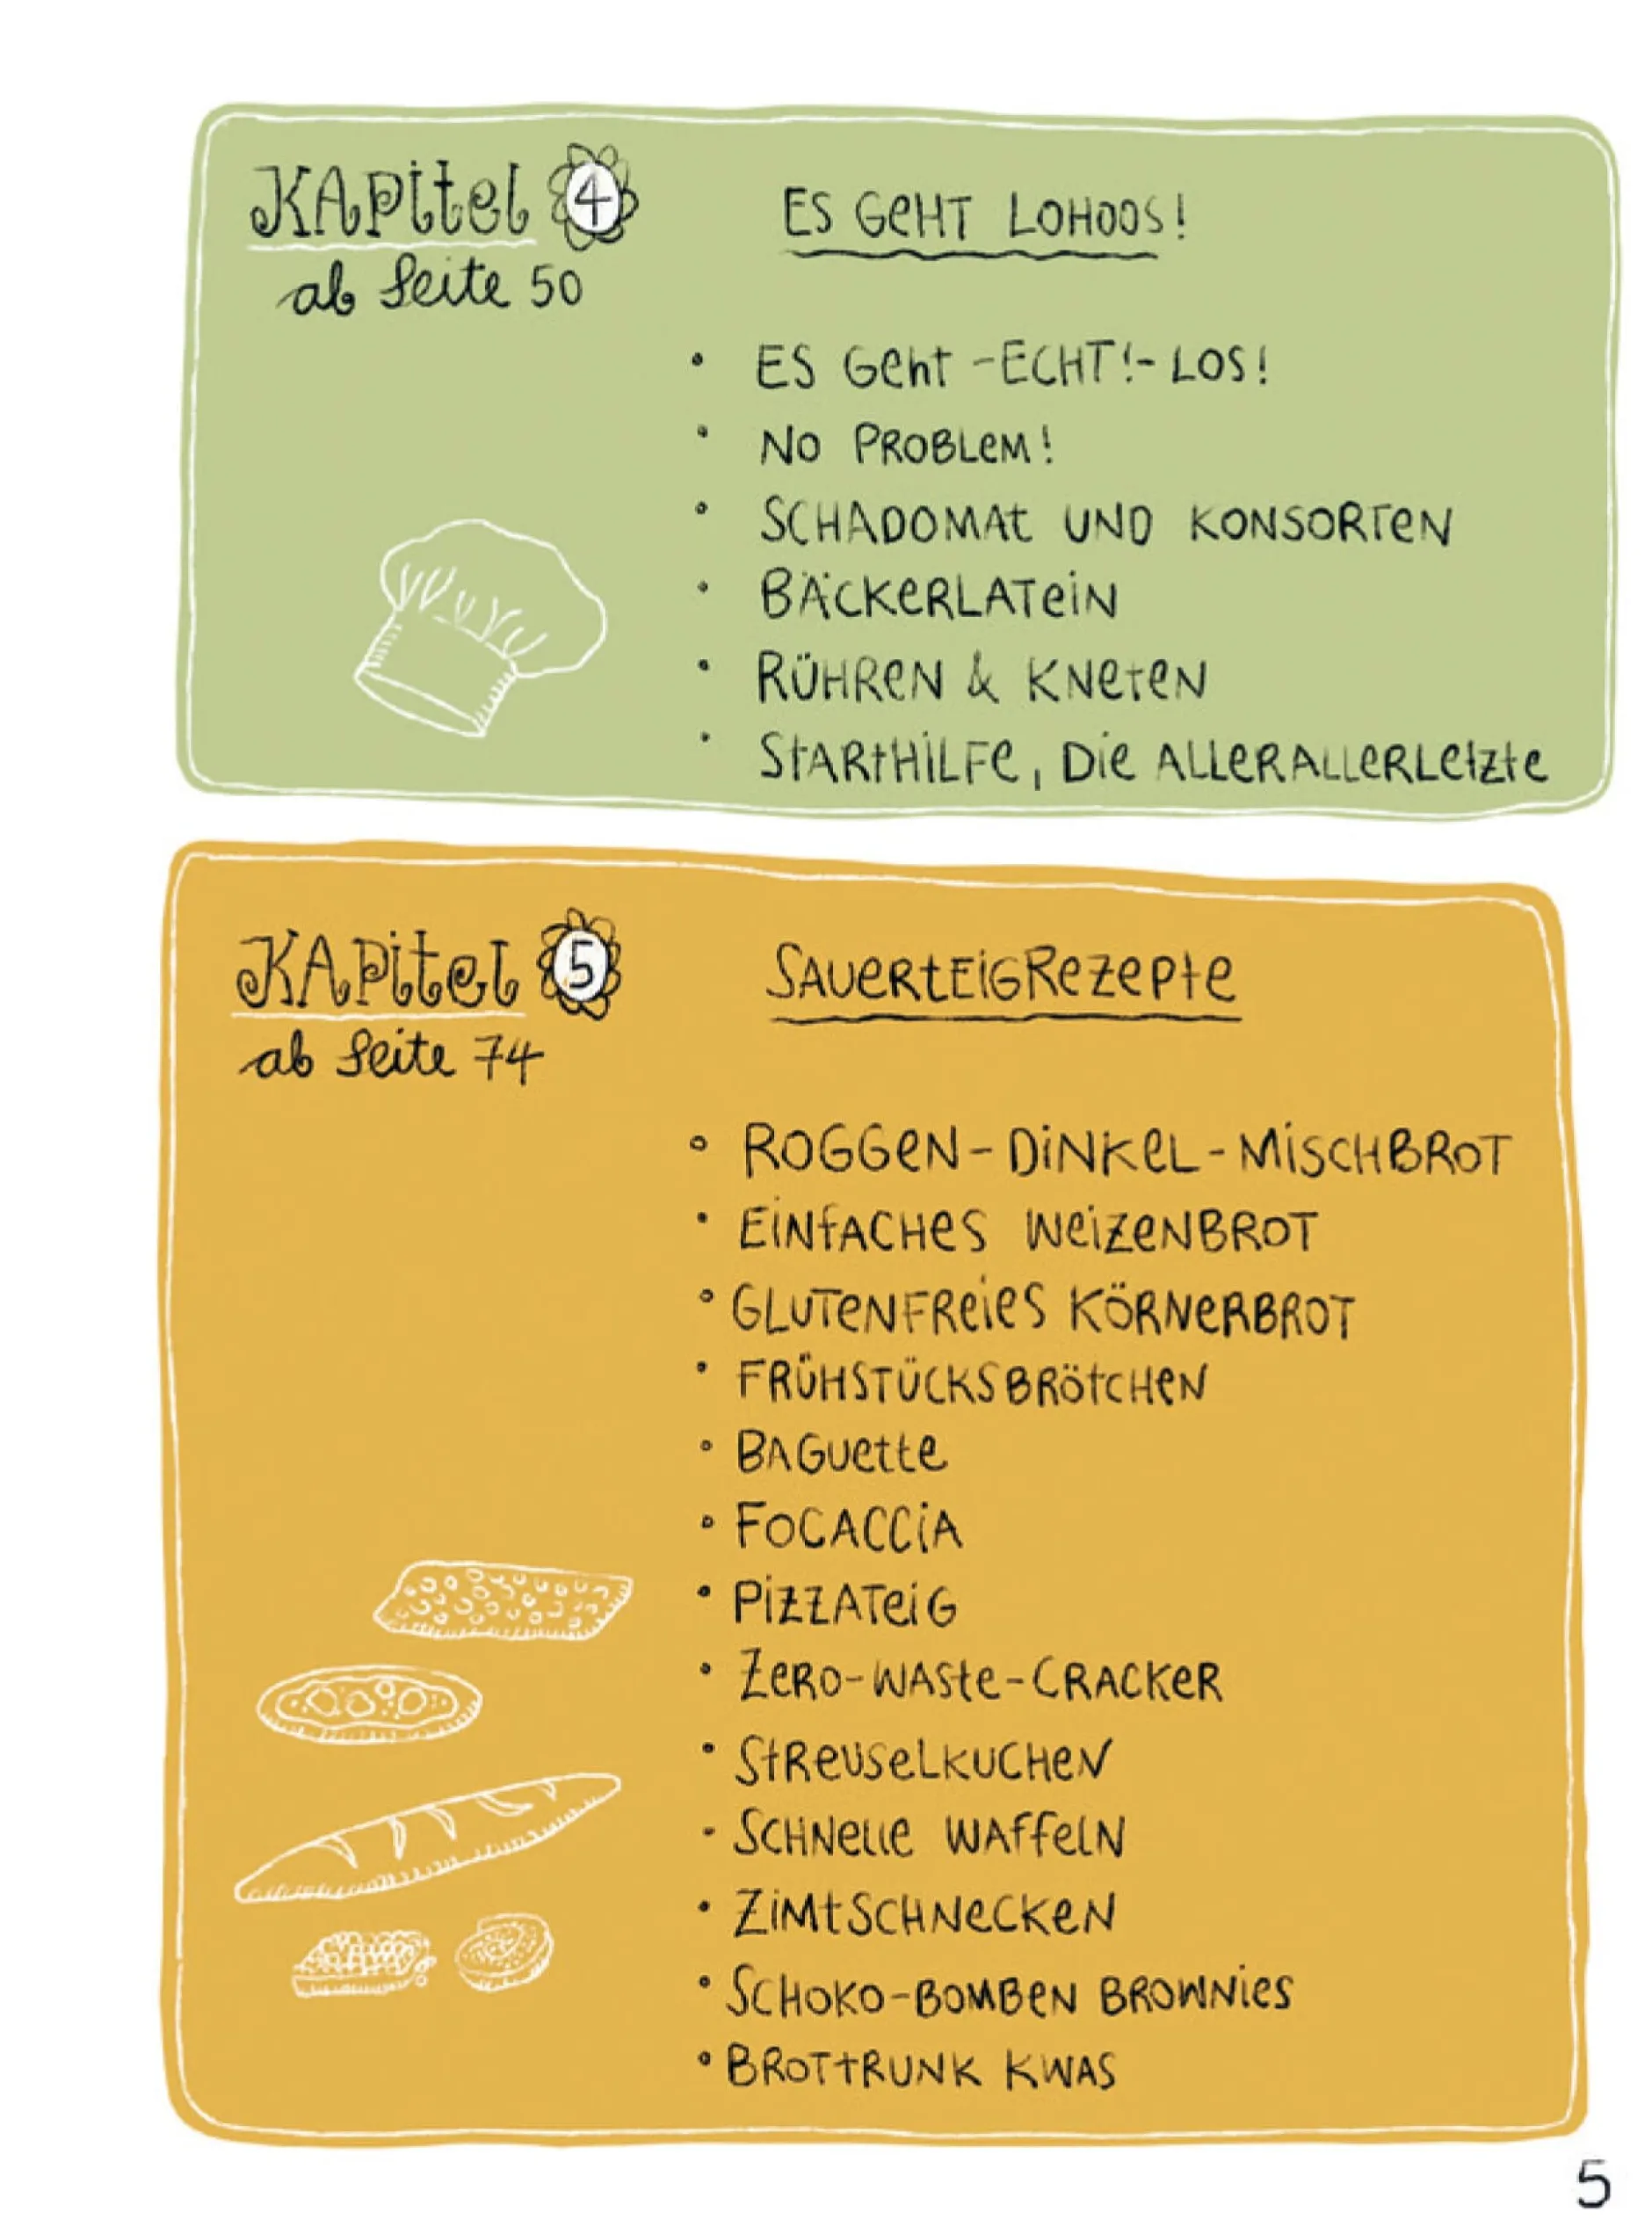 KAPitel 4
ab Seite 50
ES GeHT LOHOOS!
• ES Geht -ECHT!- LOS!
• NO PROBLeM!
• SCHADOMAt UND KONSORTeN
• BÄCKeRLATeiN
• RÜHReN & KNeteN
• StARtHiLFe, Die ALLeRALLeRLetzte
KAPiteL 5
ab Seite 74
SAUeRtEiGRezePte
• ROGGeN-DiNKeL-MiSCHBROT
• EiNfACHeS WeizeNBROT
• GLUTeNFReieS KÖRNeRBROT
• FRÜHSTÜCKSBRötCHeN
• BAGuette
• FOCACCiA
• PizzATeiG
• ZeRO-WASte-CRACKeR
• StReuSeLKUCHeN
• SCHNelle WAffelN
• ZiMtSCHNeCKeN
• SCHOKO-BOMBeN BROWNieS
• BROTtRUNK KWAS
5